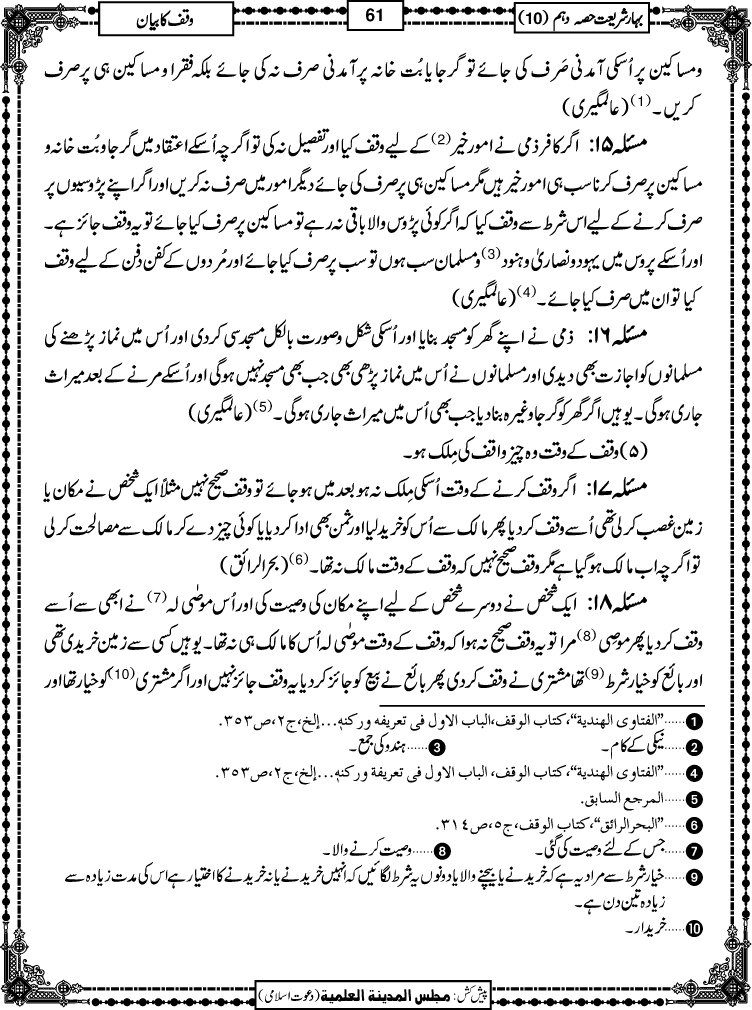 بہارِ شریعت حصہ دہم (10)
61
وقف کا بیان
ومساکین پر اُسکی آمدنی صَرف کی جائے تو گرجا یا بُت خانہ پر آمدنی صرف نہ کی جائے بلکہ فقرا و مساکین ہی پر صرف
کریں۔(1) (عالمگیری)
مسئلہ ۱۵: اگر کافر ذمی نے امورِ خیر(2) کے لیے وقف کیا اور تفصیل نہ کی تو اگرچہ اُسکے اعتقاد میں گرجا و بُت خانہ و
مساکین پر صرف کرنا سب ہی امورِ خیر ہیں مگر مساکین ہی پر صرف کی جائے دیگر امور میں صرف نہ کریں اور اگر اپنے پڑوسیوں پر
صرف کرنے کے لیے اس شرط سے وقف کیا کہ اگر کوئی پڑوس والا باقی نہ رہے تو مساکین پر صرف کیا جائے تو یہ وقف جائز ہے۔
اور اُسکے پروس میں یہود و نصاریٰ و ہنود(3) ومسلمان سب ہوں تو سب پر صرف کیا جائے اور مُردوں کے کفن دفن کے لیے وقف
کیا تو ان میں صرف کیا جائے۔(4) (عالمگیری)
مسئلہ ۱۶: ذمی نے اپنے گھر کو مسجد بنایا اور اُسکی شکل وصورت بالکل مسجد سی کردی اور اُس میں نماز پڑھنے کی
مسلمانوں کو اجازت بھی دیدی اور مسلمانوں نے اُس میں نماز پڑھی بھی جب بھی مسجد نہیں ہوگی اور اُسکے مرنے کے بعد میراث
جاری ہوگی۔ یوہیں اگر گھر کو گرجا وغیرہ بنا دیا جب بھی اُس میں میراث جاری ہوگی۔(5) (عالمگیری)
(۵) وقف کے وقت وہ چیز واقف کی مِلک ہو۔
مسئلہ ۱۷: اگر وقف کرنے کے وقت اُسکی مِلک نہ ہو بعد میں ہو جائے تو وقف صحیح نہیں مثلاً ایک شخص نے مکان یا
زمین غصب کرلی تھی اُسے وقف کردیا پھر مالک سے اُس کو خرید لیا اور ثمن بھی ادا کر دیا یا کوئی چیز دے کر مالک سے مصالحت کرلی
تو اگرچہ اب مالک ہوگیا ہے مگر وقف صحیح نہیں کہ وقف کے وقت مالک نہ تھا۔(6) (بحرالرائق)
مسئلہ ۱۸: ایک شخص نے دوسرے شخص کے لیے اپنے مکان کی وصیت کی اور اُس موصٰی لہ(7) نے ابھی سے اُسے
وقف کر دیا پھر موصِی(8) مرا تو یہ وقف صحیح نہ ہوا کہ وقف کے وقت موصٰی لہ اُس کا مالک ہی نہ تھا۔ یوہیں کسی سے زمین خریدی تھی
اور بائع کو خیارِ شرط(9) تھا مشتری نے وقف کردی پھر بائع نے بیع کو جائز کردیا یہ وقف جائز نہیں اور اگر مشتری(10) کو خیار تھا اور
1 ......”الفتاوی الھندیة“، کتاب الوقف، الباب الاول فی تعریفه ورکنهٖ...إلخ، ج۲، ص۳۵۳.
2 ......نیکی کے کام۔ 3 ......ہندو کی جمع۔
4 ......”الفتاوی الھندیة“، کتاب الوقف، الباب الاول فی تعریفة ورکنهٖ...إلخ، ج۲، ص۳۵۳.
5 ......المرجع السابق.
6 ......”البحرالرائق“، کتاب الوقف، ج۵، ص۳۱٤.
7 ......جس کے لئے وصیت کی گئی۔ 8 ......وصیت کرنے والا۔
9 ......خیارِ شرط سے مراد یہ ہے کہ خریدنے یا بیچنے والا یا دونوں یہ شرط لگائیں کہ انہیں خریدنے یا نہ خریدنے کا اختیار ہے اس کی مدت زیادہ سے
زیادہ تین دن ہے۔
10 ......خریدار۔
پیش کش: مجلس المدینة العلمیة (دعوتِ اسلامی)